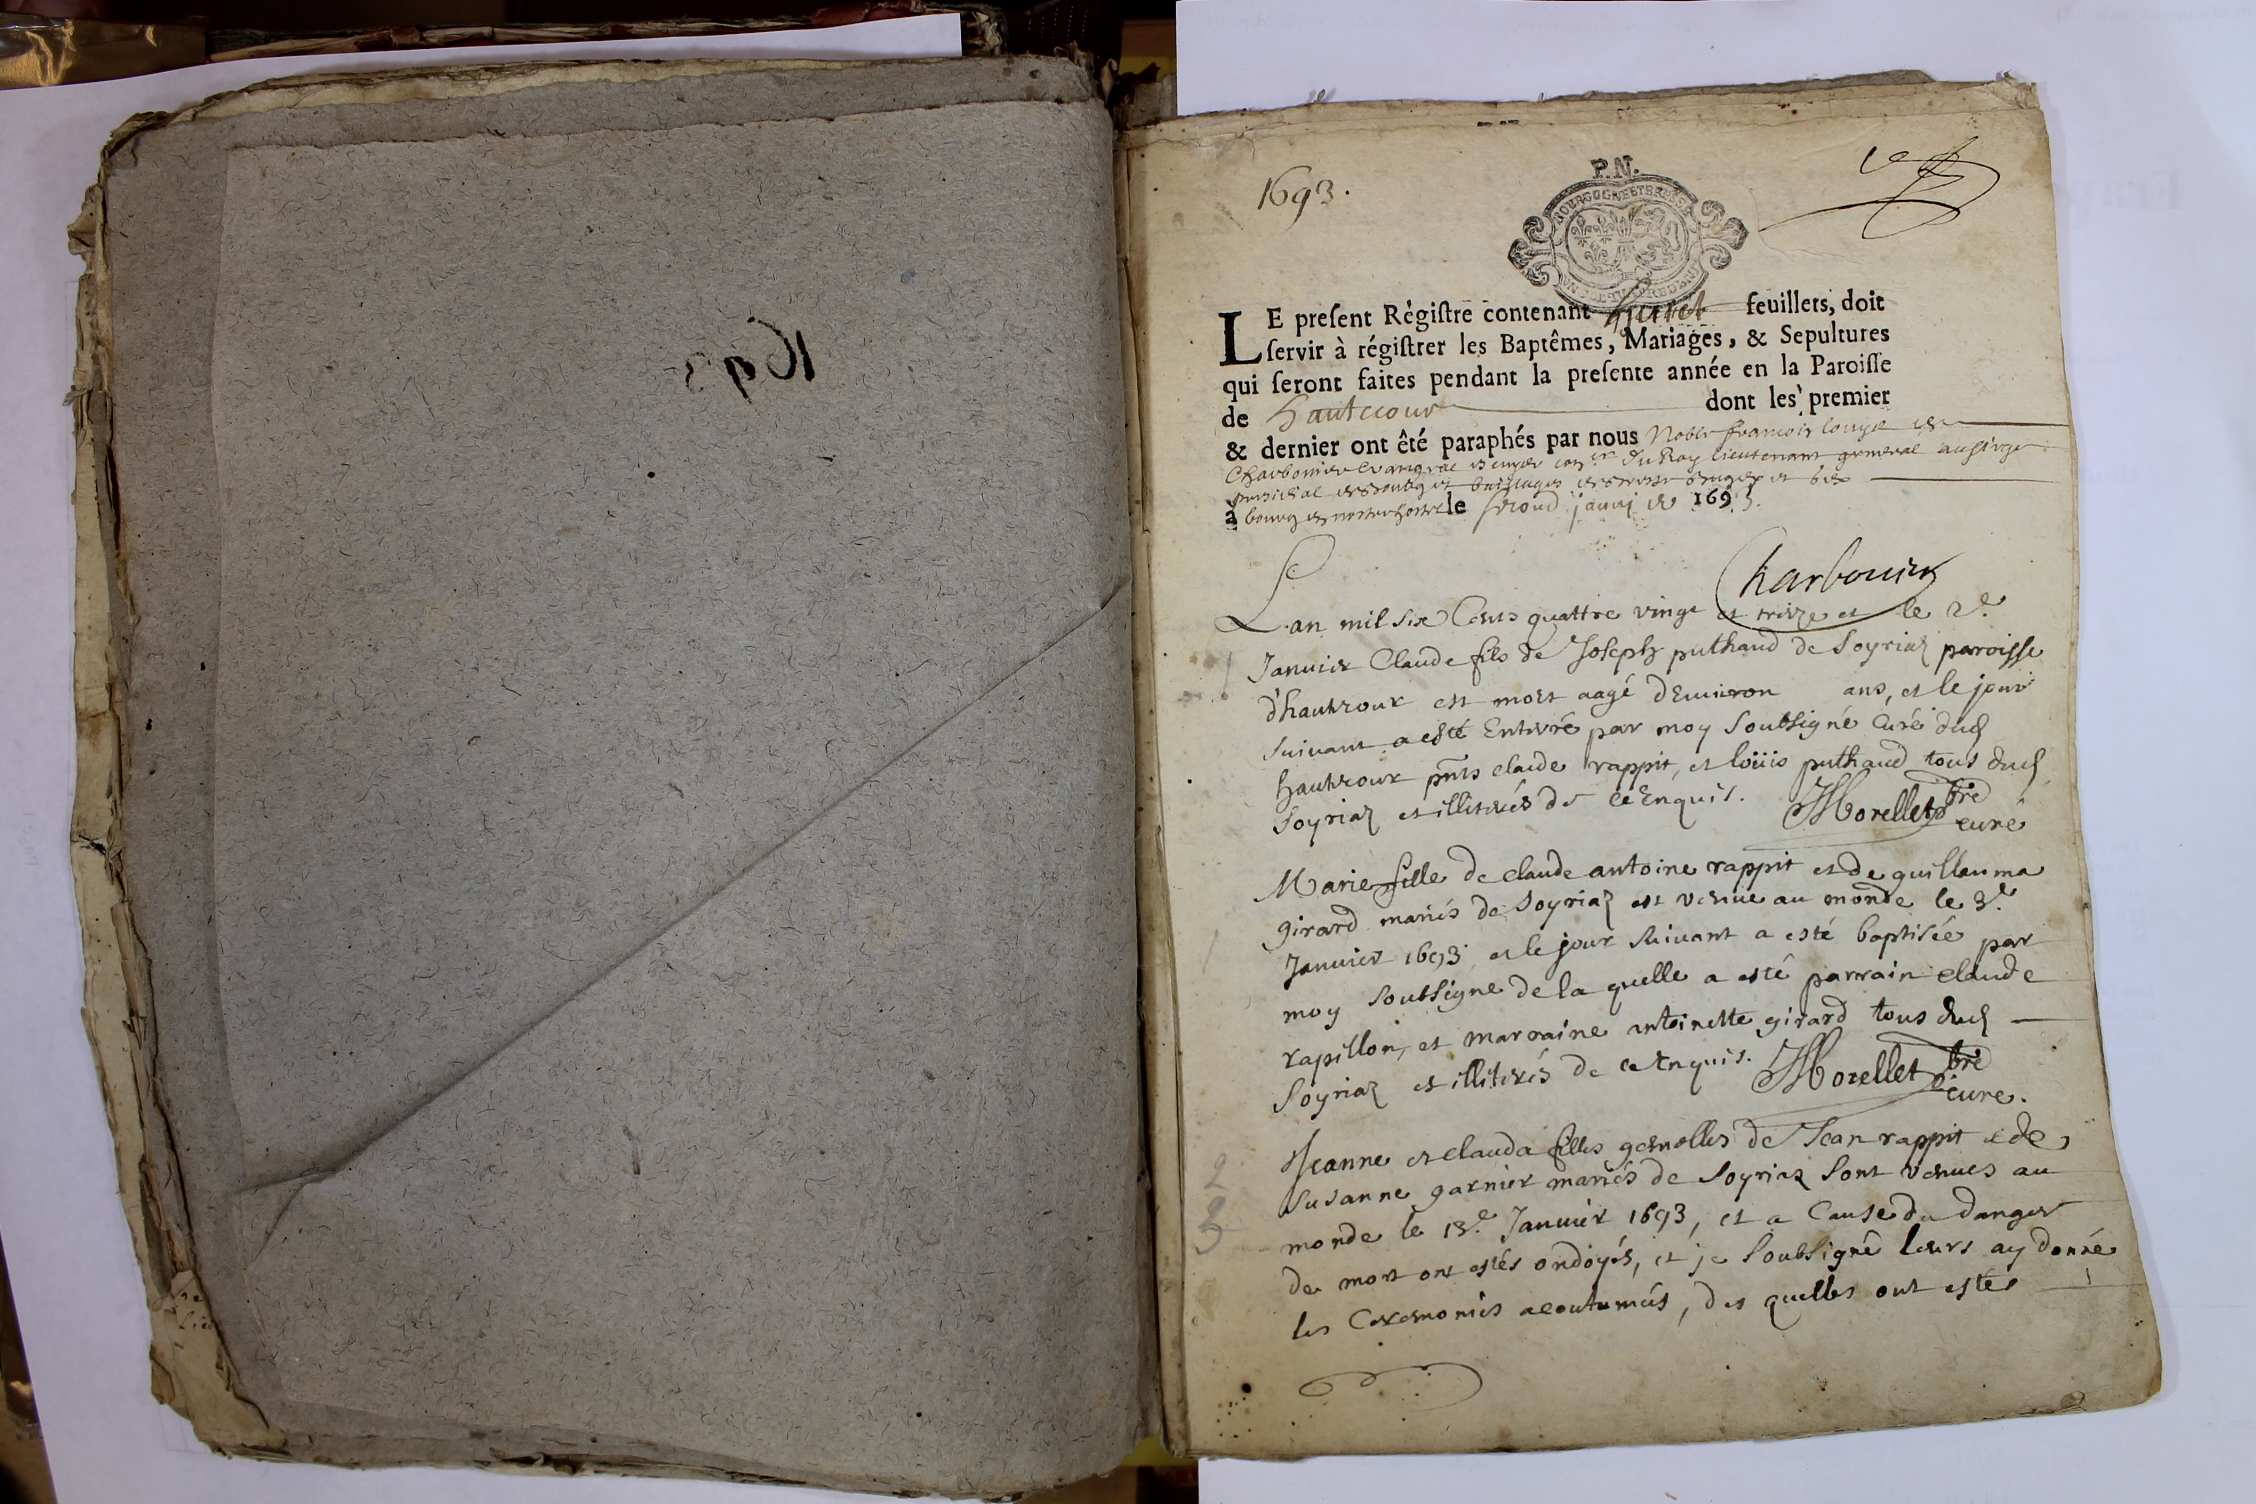 1693
1693.
P.N.
BOURGOGNE ET BRESSE
LE preſent Régiſtre contenant huict feuillets, doit
ſervir à régiſtrer les Baptêmes, Mariages, & Sepultures
qui ſeront faites pendant la preſente année en la Paroiſſe
de hautecour dont les premier
& dernier ont êté paraphés par nous Noble francois
Charbonier du Roy lieutenant general au siege
presidial et bailliages de bresse
à bourg le second janvi 1693.
Charbonier
L'an mil six Cents quattre vingt et treize et le 2e.
Janvier Claude fils de Joseph puthaud de Soyriaz paroisse
d'hautecour est mort aagé d'Environ ans, et le jour
suivant a esté Enterré par moy soubsigné Curé dud
hautecour pnts claude rappit, et loüis puthaud tous dud
Soyriaz et illiterés de ce Enquis. Morellet pbre
curé
Marie fille de claude antoine rappit et de guillauma
girard mariés de Soyriaz est venue au monde le 3e.
Janvier 1693, et le jour suivant a esté baptisée par
moy soubsigne de la quelle a esté parrain claude
rapillon, et marraine antoinette girard tous dud
Soyriaz et illiterés de ce Enquis. Morellet pbre
cure.
Jeanne et clauda filles gemelles de Jean rappit et de
Susanne garnier mariés de Soyriaz sont venues au
monde le 13e. Janvier 1693, et a Cause du danger
de mort ont estés ondoyés, et je soubsigné leurs ay donné
les Ceremonies acoutumées, des quelles ont estés